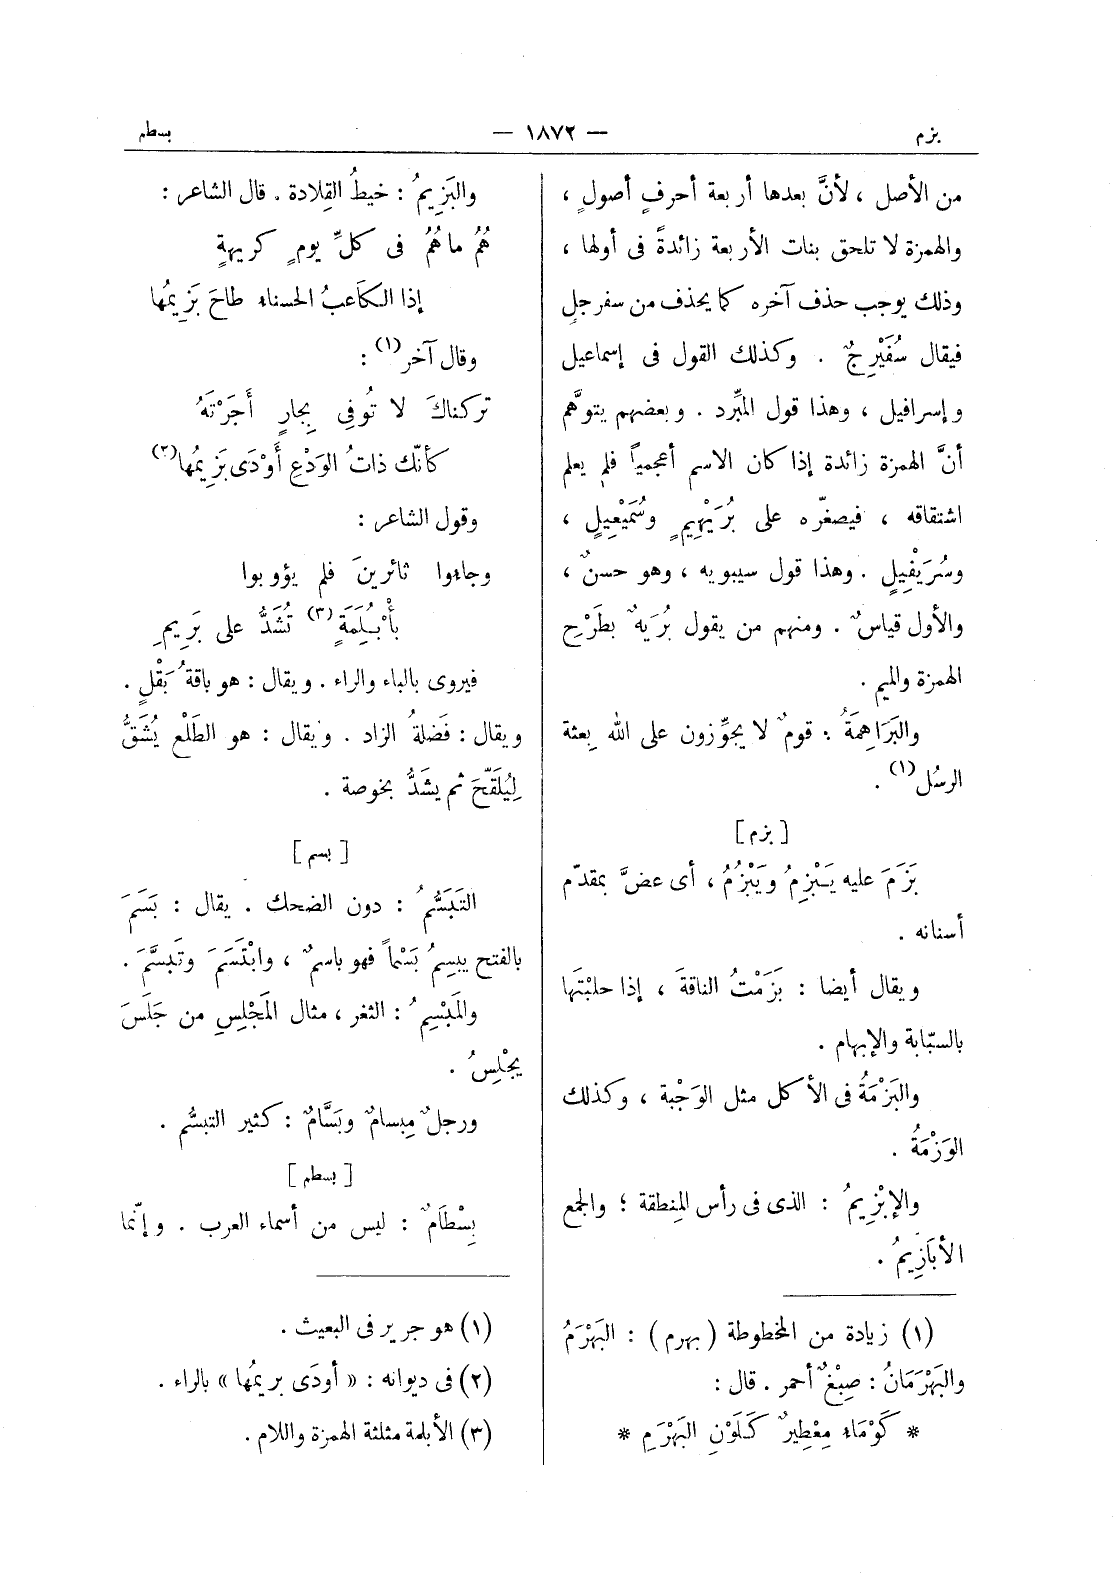 بزم
— ١٨٧٢ —
بسطم
من الأصل ، لأنَّ بعدها أربعة أحرفٍ أصولٍ ،
والهمزة لا تلحق بنات الأربعة زائدةً فى أولها ،
وذلك يوجب حذف آخره كما يحذف من سفرجلٍ
فيقال سُفَيْرِجٌ . وكذلك القول فى إسماعيل
وإسرافيل ، وهذا قول المبِّرد . وبعضهم يتوهَّم
أنَّ الهمزة زائدة إذا كان الاسم أعجمياً فلم يعلم
اشتقاقه ، فيصغّره على بُرَيْهِيمٍ وسُمَيْعِيلٍ ،
وسُرَيْفِيلٍ . وهذا قول سيبويه ، وهو حسنٌ ،
والأول قياسٌ . ومنهم من يقول بُرَيهٌ بطَرْحِ
الهمزة والميم .
والبَرَاهِمَةُ : قومٌ لا يجوِّزون على الله بِعثة
الرسُل(١) .
[ بزم ]
بَزَمَ عليه يَبْزِمُ ويَبْزُمُ ، أى عضَّ بمقدّم
أسنانه .
ويقال أيضا : بَزَمْتُ الناقةَ ، إذا حلبْتَها
بالسبّابة والإبهام .
والبَزْمَةُ فى الأكل مثل الوَجْبة ، وكذلك
الوَزْمَةُ .
والإبْزِيمُ : الذى فى رأس المِنطقة ؛ والجمع
الأبَازِيمُ .
(١) زيادة من المخطوطة (بهرم) : البَهْرَمُ
والبَهْرَمَانُ : صِبْغٌ أحمر . قال :
* كَوْمَاء مِعْطِيرٌ كَلَوْنِ البَهْرَمِ *
والبَزِيمُ : خيطُ القِلادة . قال الشاعر :
هُمُ ماهُمُ فى كلِّ يومٍ كريهةٍ
إذا الكَاعبُ الحسناء طاحَ بَزِيمُها
وقال آخر(١) :
تركناكَ لا تُوفِى بِجارٍ أَجَرْتَهُ
كأنّك ذاتُ الوَدْعِ أَوْدَى بَزِيمُها(٢)
وقول الشاعر :
وجاءوا ثائرينَ فلم يؤوبوا
بأُبْلُمَةٍ(٣) تُشَدُّ على بَزِيمِ
فيروى بالباء والراء . ويقال : هو باقةُ بَقْلٍ .
ويقال : فَضلةُ الزاد . ويقال : هو الطَلْع يُشَقُّ
لِيُلَقَّحَ ثم يشَدُّ بخوصة .
[ بسم ]
التَبَسُّمُ : دون الضحك . يقال : بَسَمَ
بالفتح يبسِمُ بَسْماً فهو باسمٌ ، وابْتَسَمَ وتَبسَّمَ .
والمَبْسِمُ : الثغر ، مثال المَجْلِسِ من جَلَسَ
يجْلِسُ .
ورجلٌ مِبسامٌ وبَسَّامٌ : كثير التبسُّم .
[ بسطم ]
بِسْطَامٌ : ليس من أسماء العرب . وإنّما
(١) هو جرير فى البعيث .
(٢) فى ديوانه : « أودَى بريمُها » بالراء .
(٣) الأبلمة مثلثة الهمزة واللام .